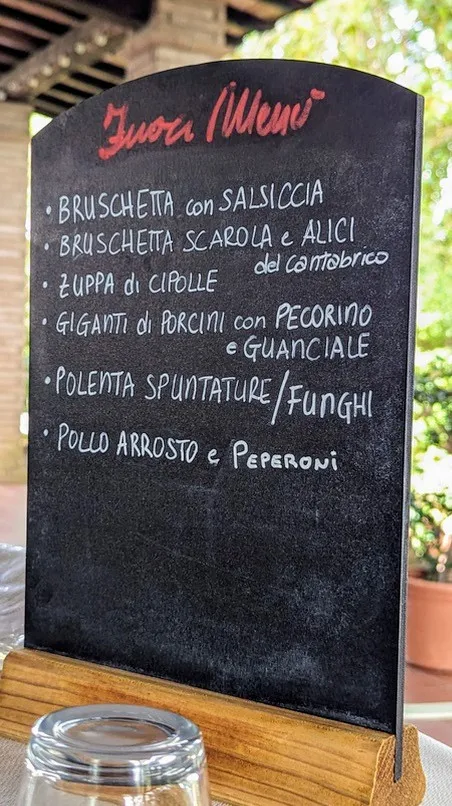 Fuori Menù
• BRUSCHETTA con SALSICCIA
• BRUSCHETTA SCAROLA e ALICI
del cantabrico
• ZUPPA di CIPOLLE
• GIGANTI di PORCINI con PECORINO
e GUANCIALE
• POLENTA SPUNTATURE/FUNGHI
• POLLO ARROSTO e PEPERONI